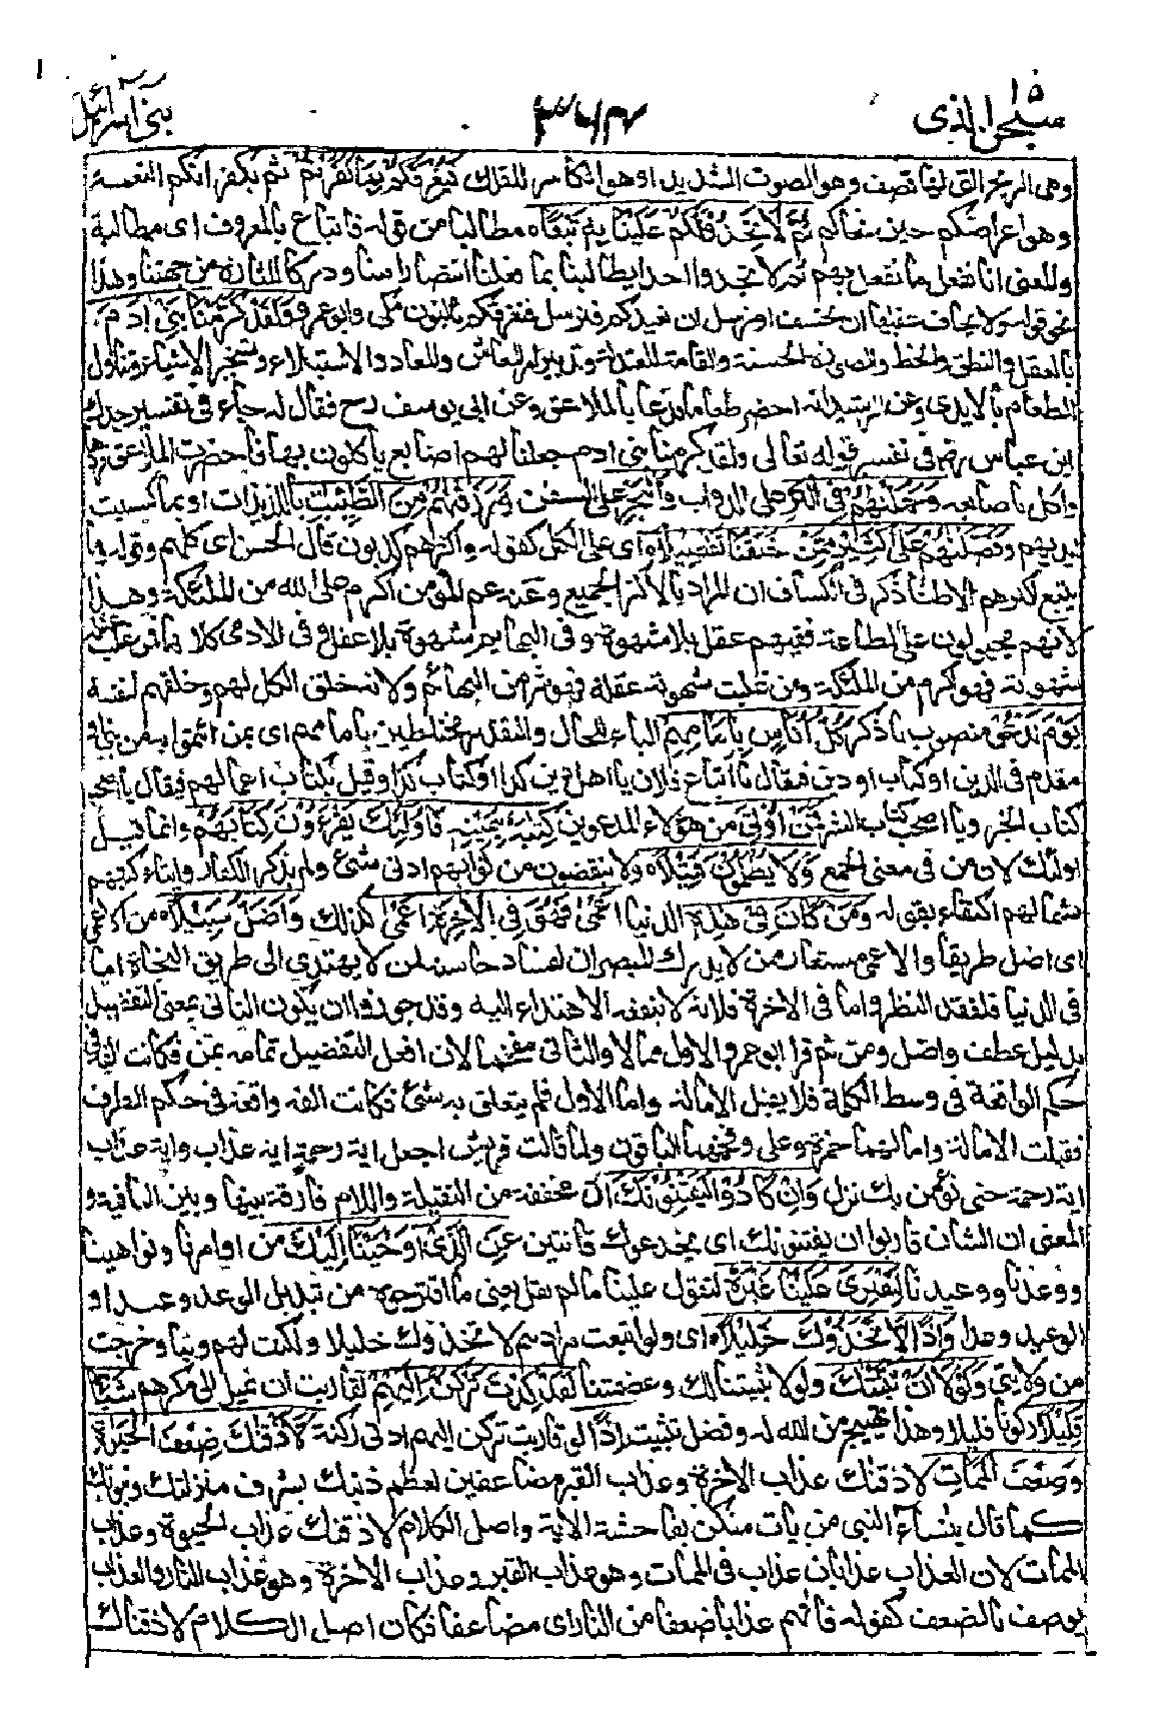 سبحن الذی ١٥
٣٦٤
بنی اسرآئیل
وهی الریح التی لها قصیف وهو الصوت الشدید او هو الکاسر للفلك فَیُغْرِقَكُمْ بِمَا كَفَرْتُمْ ثم بكفرانكم النعمة
وهو اعراضكم حین نجاكم ثُمَّ لَا تَجِدُوْا لَكُمْ عَلَيْنَا بِهٖ تَبِيْعًا مطالبا من قوله فاتباع بالمعروف ای مطالبة
والمعنی انا نفعل ما نفعل بهم ثم لا تجدوا احدا یطالبنا بما فعلنا انتصارا منا ودركا للثار من جهتنا وهذا
نحو قوله ولا یخاف عقباها ان نخسف او نرسل ان نعیدكم فنرسل فنغرقكم بالنون مكی وابو عمرو وَلَقَدْ كَرَّمْنَا بَنِیْ اٰدَمَ
بالعقل والنطق والخط والصورة الحسنة والقامة المعتدلة وتدبیر امر المعاش والمعاد والاستیلاء وتسخیر الاشیاء وتناول
الطعام بالایدی وعن الرشید انه احضر طعاما فدعا بالملاعق وعن ابی یوسف رح فقال له جاء فی تفسیر جدك
ابن عباس رض فی تفسیر قوله تعالی ولقد كرمنا بنی ادم جعلنا لهم اصابع یاكلون بها فاحضرت الملاعق فردها
واكل باصابعه وَحَمَلْنٰهُمْ فِی الْبَرِّ علی الدواب وَالْبَحْرِ علی السفن وَرَزَقْنٰهُمْ مِّنَ الطَّيِّبٰتِ باللذیذات او بما كسبت
ایدیهم وَفَضَّلْنٰهُمْ عَلٰی كَثِيْرٍ مِّمَّنْ خَلَقْنَا تَفْضِيْلًا ای علی الكل كقوله واكثرهم كذبون قال الحسن ای كلهم وقوله وما
یتبع اكثرهم الا ظنا ذكر فی الكشاف ان المراد بالاكثر الجمیع وعنه عم المؤمن اكرم علی الله من الملئكة وهذا
لانهم مجبولون علی الطاعة ففیهم عقل بلا شهوة وفی البهایم شهوة بلا عقل وفی الادمی كلاهما فمن غلب عقله
شهوته فهو اكرم من الملئكة ومن غلبت شهوته عقله فهو شر من البهائم ولانه خلق الكل لهم وخلقهم لنفسه
يَوْمَ نَدْعُوْا منصوب باذكر كُلَّ اُنَاسٍۭ بِاِمَامِهِمْ الباء للحال والتقدیر مختلطین بامامهم ای بمن ائتموا به من نبی او
مقدم فی الدین او كتاب او دین فیقال یا اتباع فلان یا اهل دین كذا او كتاب كذا وقیل بكتاب اعمالهم فیقال یا اصحب
كتاب الخیر ویا اصحب كتاب الشر فَمَنْ اُوْتِیَ من هؤلاء المدعوین كِتٰبَهٗ بِيَمِيْنِهٖ فَاُولٰٓئِكَ يَقْرَءُوْنَ كِتٰبَهُمْ وانما قیل
اولئك لان من فی معنی الجمع وَلَا يُظْلَمُوْنَ فَتِيْلًا ولا ینقصون من ثوابهم ادنی شئ ولم یذكر الكفار وایتاء كتبهم
بشمالهم اكتفاء بقوله وَمَنْ كَانَ فِیْ هٰذِهٖٓ الدنیا اَعْمٰی فَهُوَ فِی الْاٰخِرَةِ اَعْمٰی كذلك وَاَضَلُّ سَبِيْلًا من الاعمی
ای اضل طریقا والاعمی مستعار ممن لا یدرك المبصران لفساد حاسته لمن لا یهتدی الی طریق النجاة اما
فی الدنیا فلفقد النظر واما فی الاخرة فلانه لا ینفعه الاهتداء الیه وقد جوزوا ان یكون الثانی بمعنی التفضیل
بدلیل عطف واضل ومن ثم قرا ابو عمرو الاول ممالا والثانی مفخما لان افعل التفضیل تمامه بمن فكانت الفه فی
حكم الواقعة فی وسط الكلمة فلا یقبل الامالة واما الاول فلم یتعلق به شئ فكانت الفه واقعة فی حكم الطرف
فقبلت الامالة وامالهما حمزة وعلی وفخمهما الباقون ولما قالت قریش اجعل ایة رحمة ایة عذاب وایة عذاب
ایة رحمة حتی نؤمن بك نزل وَاِنْ كَادُوْا لَيَفْتِنُوْنَكَ ان مخففة من الثقیلة واللام فارقة بینها وبین النافیة و
المعنی ان الشان قاربوا ان یفتنوك ای یخدعوك فاتنین عَنِ الَّذِیْٓ اَوْحَيْنَآ اِلَيْكَ من اوامرنا ونواهینا
ووعدنا ووعیدنا لِتَفْتَرِیَ عَلَيْنَا غَيْرَهٗ لتقول علینا ما لم نقل یعنی ما اقترحوه من تبدیل الوعد وعیدا و
الوعید وعدا وَاِذًا لَّاتَّخَذُوْكَ خَلِيْلًا ای ولو اتبعت مرادهم لاتخذوك خلیلا ولكنت لهم ولیا وخرجت
من ولایتی وَلَوْلَآ اَنْ ثَبَّتْنٰكَ ولولا تثبیتنا لك وعصمتنا لَقَدْ كِدْتَّ تَرْكَنُ اِلَيْهِمْ لقاربت ان تمیل الی مكرهم شَيْـًٔا
قَلِيْلًا ركونا قلیلا وهذا تهییج من الله له وفضل تثبیت اِذًا لو قاربت تركن الیهم ادنی ركنة لَّاَذَقْنٰكَ ضِعْفَ الْحَيٰوةِ
وَضِعْفَ الْمَمَاتِ لاذقنك عذاب الاخرة وعذاب القبر مضاعفین لعظم ذنبك بشرف منزلتك ونبوتك
كما قال ینسآء النبی من یات منكن بفاحشة الایة واصل الكلام لاذقنك عذاب الحیوة وعذاب
الممات لان العذاب عذابان عذاب فی الممات وهو عذاب القبر وعذاب الاخرة وهو عذاب النار والعذاب
یوصف بالضعف كقوله فاتهم عذابا ضعفا من النار ای مضاعفا فكان اصل الكلام لاذقناك